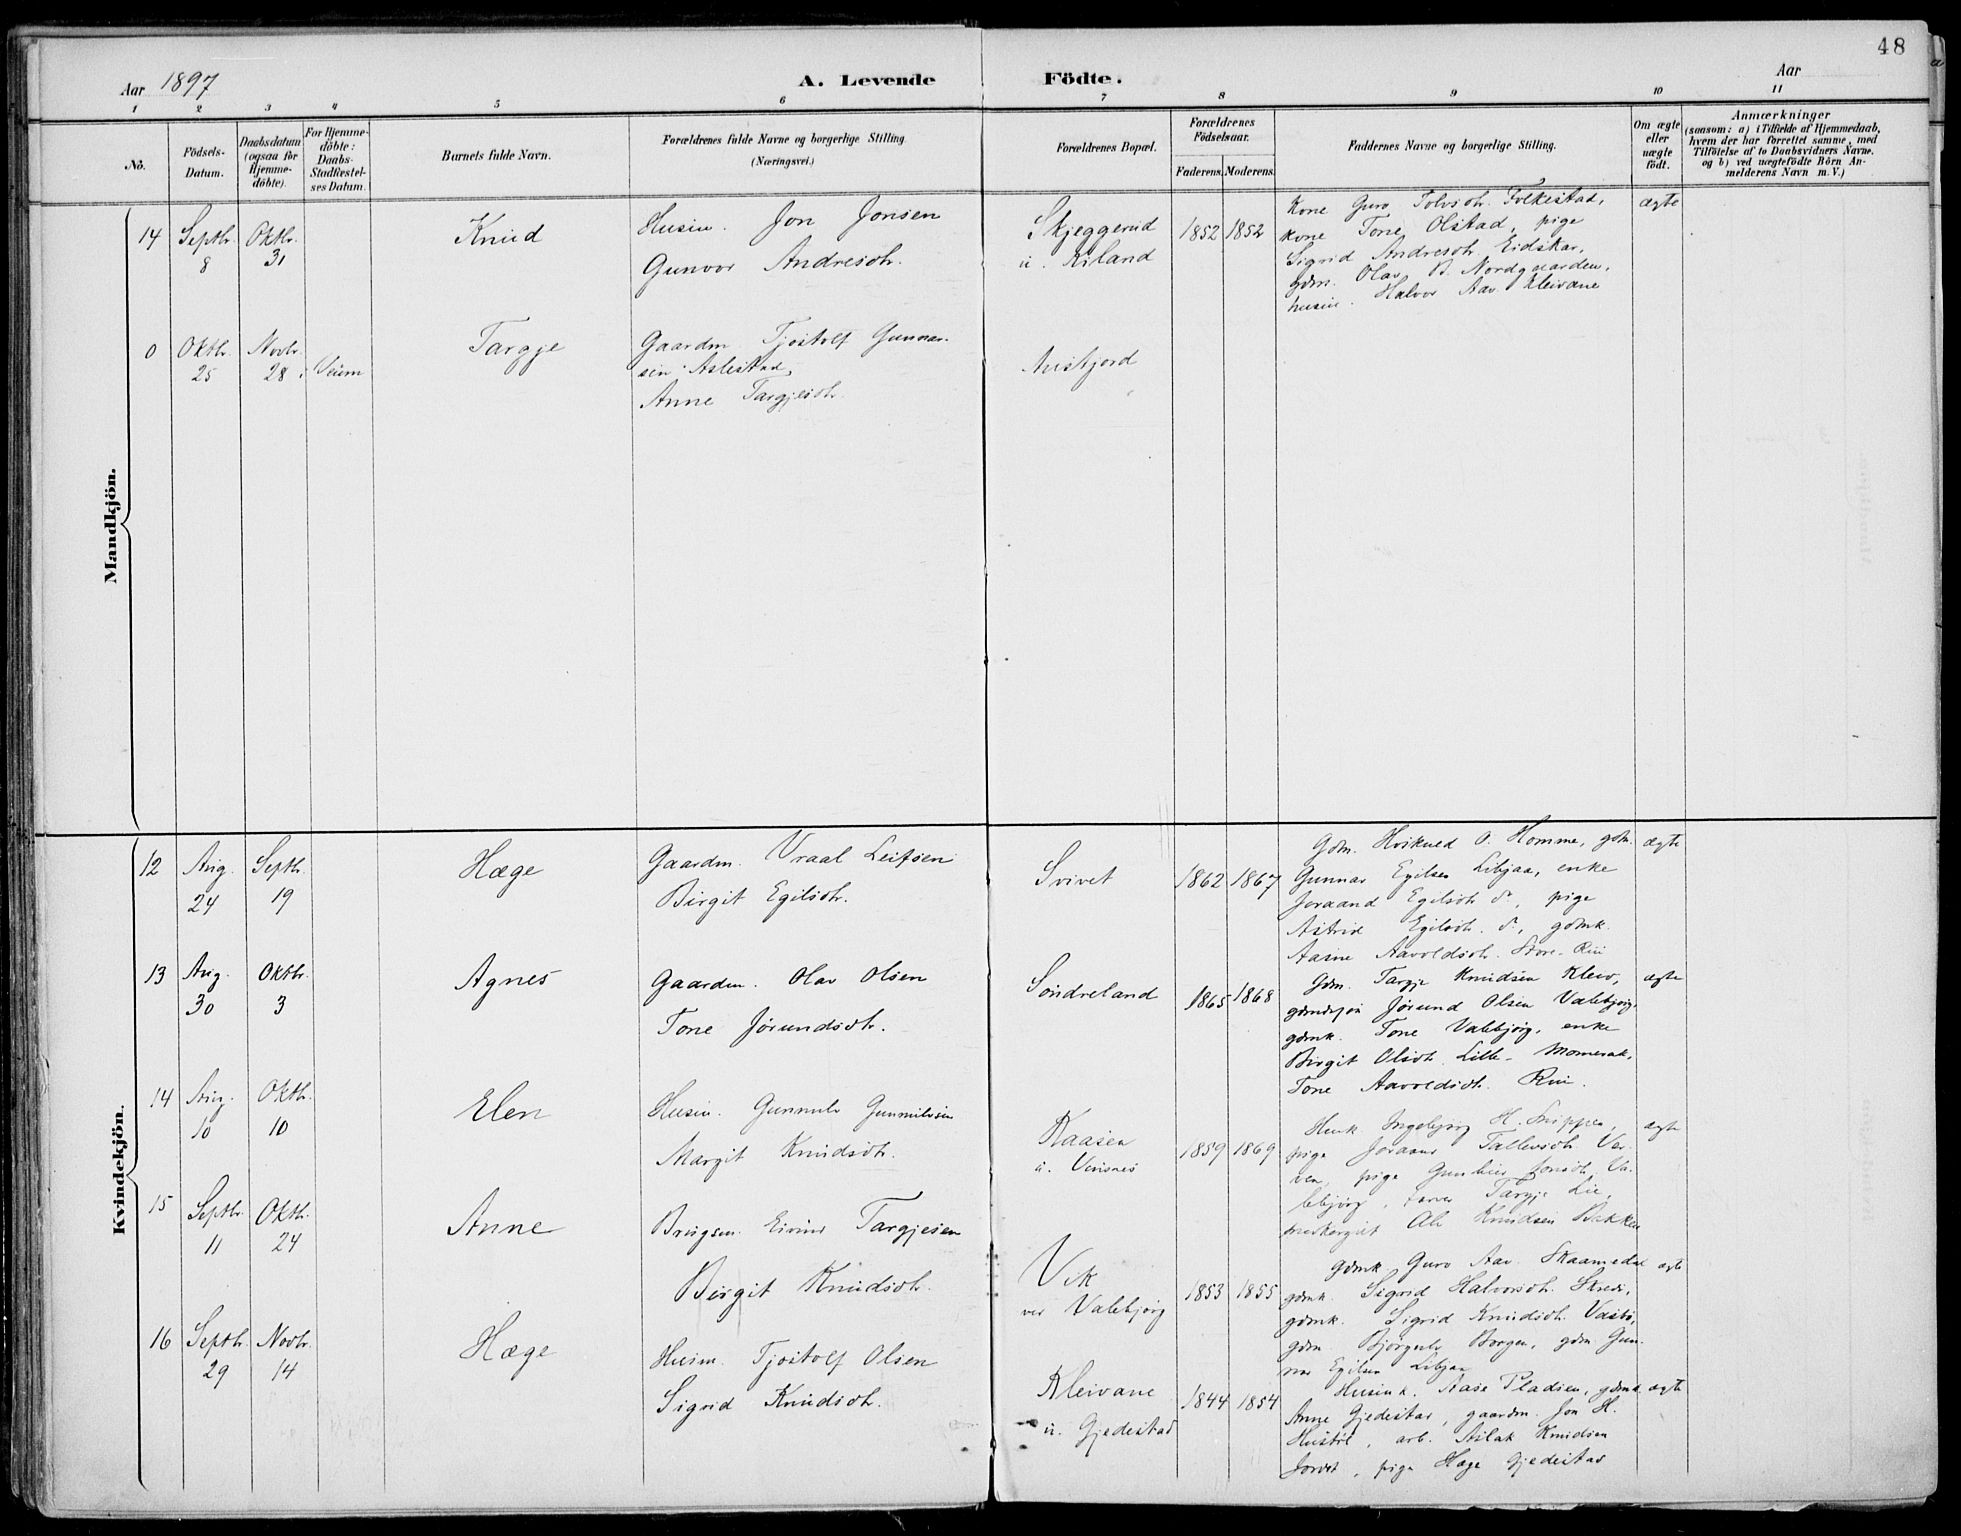 48
Aar 1897
A. Levende Födte.
Aar
1 2 3 4 5 6 7 8 9 10 11
No.
Födsels-Datum.
Daabsdatum (ogsaa for Hjemme-döbte).
For Hjemme-döbte: Daabs-Stadfæstel-ses Datum.
Barnets fulde Navn.
Forældrenes fulde Navne og borgerlige Stilling
(Næringsvei.)
Forældrenes Bopæl.
Forældrenes Födselsaar.
Faderens. Moderens.
Faddernes Navne og borgerlige Stilling.
Om ægte eller uægte födt.
Anmærkninger
(saasom: a) i Tilfælde af Hjemmedaab,
hvem der har forrettet samme, med
Tilföielse af to Daabsvidners Navne.
og b) ved uægtefödte Börn An-
melderens Navn m. V.)
Mandkjön.
14 Septbr. 8 Oktbr. 31 Knud
Husm. Jon Jonsen
Gunvor Andresdtr.
Skjeggerud
u. Kiland
1852 1852
Kone Guro Tolvsdtr. Folkestad,
kone Tone Olstad, pige
Sigrid Andresdtr Eidskar,
gdm. Olav B. Nordgaarden,
husm. Halvor Aav. Kleivane
ægte
0 Oktbr. 25 Novbr. 28 Veum Targje
Gaardm Tjostolf Gunnar-
sen Aslestad,
Anne Targjesdtr.
Midtfjord
Kvindekjön.
12 Aug. 24 Septbr. 19 Hæge
Gaardm. Vraal Leifsen
Birgit Egilsdtr.
Svivet
1862 1867
Gdm. Hvikued O. Homme, gdm.
Gunnar Egilsen Libjaa, enke
Joraand Egilsdtr d., pige
Astrid Egilsdtr. d., gdmk.
Aasne Aavoldsdtr. Store-Rui
ægte
13 Aug. 30 Oktbr. 3 Agnes
Gaardm. Olav Olsen
Tone Jørundsdtr.
Söndreland
1865 1868
Gdm. Targje Knudsen Kleiv,
gdmdssøn Jørund Olsen Valebjørg,
gdmk. Tone Valebjørg, enke
Birgit Olsdtr. Lille-Momrak,
Tone Aavoldsdtr. Rui.
ægte
14 Aug. 10 Oktbr. 10 Elen
Husm. Gunnulv Gunnulvsen
Margit Knudsdtr.
Kaasen
u. Vinsnes
1859 1869
Husk Ingebjørg H. Snippen,
pige Joraand Tallevsdtr. Ver-
ven, pige Gunhild Jonsdtr. Va-
lebjørg, Targje Lie,
Ole Knudsen Bakken
ægte
15 Septbr. 11 Oktbr. 24 Anne
Brugsm. Eivind Targjesen
Birgit Knudsdtr.
Vik
ved Valebjørg
1853 1855
Gdmk. Guro Aav. Skaamedal
gdmk. Sigrid Halvorsdtr. Skredi,
gdmk. Sigrid Knudsdtr. Vaabø,
gdm Bjørgulv Borgen, gdm Gun-
nar Egilsen Libjaa
ægte
16 Septbr. 29 Novbr. 14 Hæge
Husm. Tjostolf Olsen
Sigrid Knudsdtr.
Kleivane
u. Gjedestad
1844 1854
Husmk. Aase Pladsen, gdmk
Anne Gjedestad, gaardm. Jon H.
Hustöl, arb. Aslak Knudsen
Jordet, pige Hæge Gjedestad
ægte